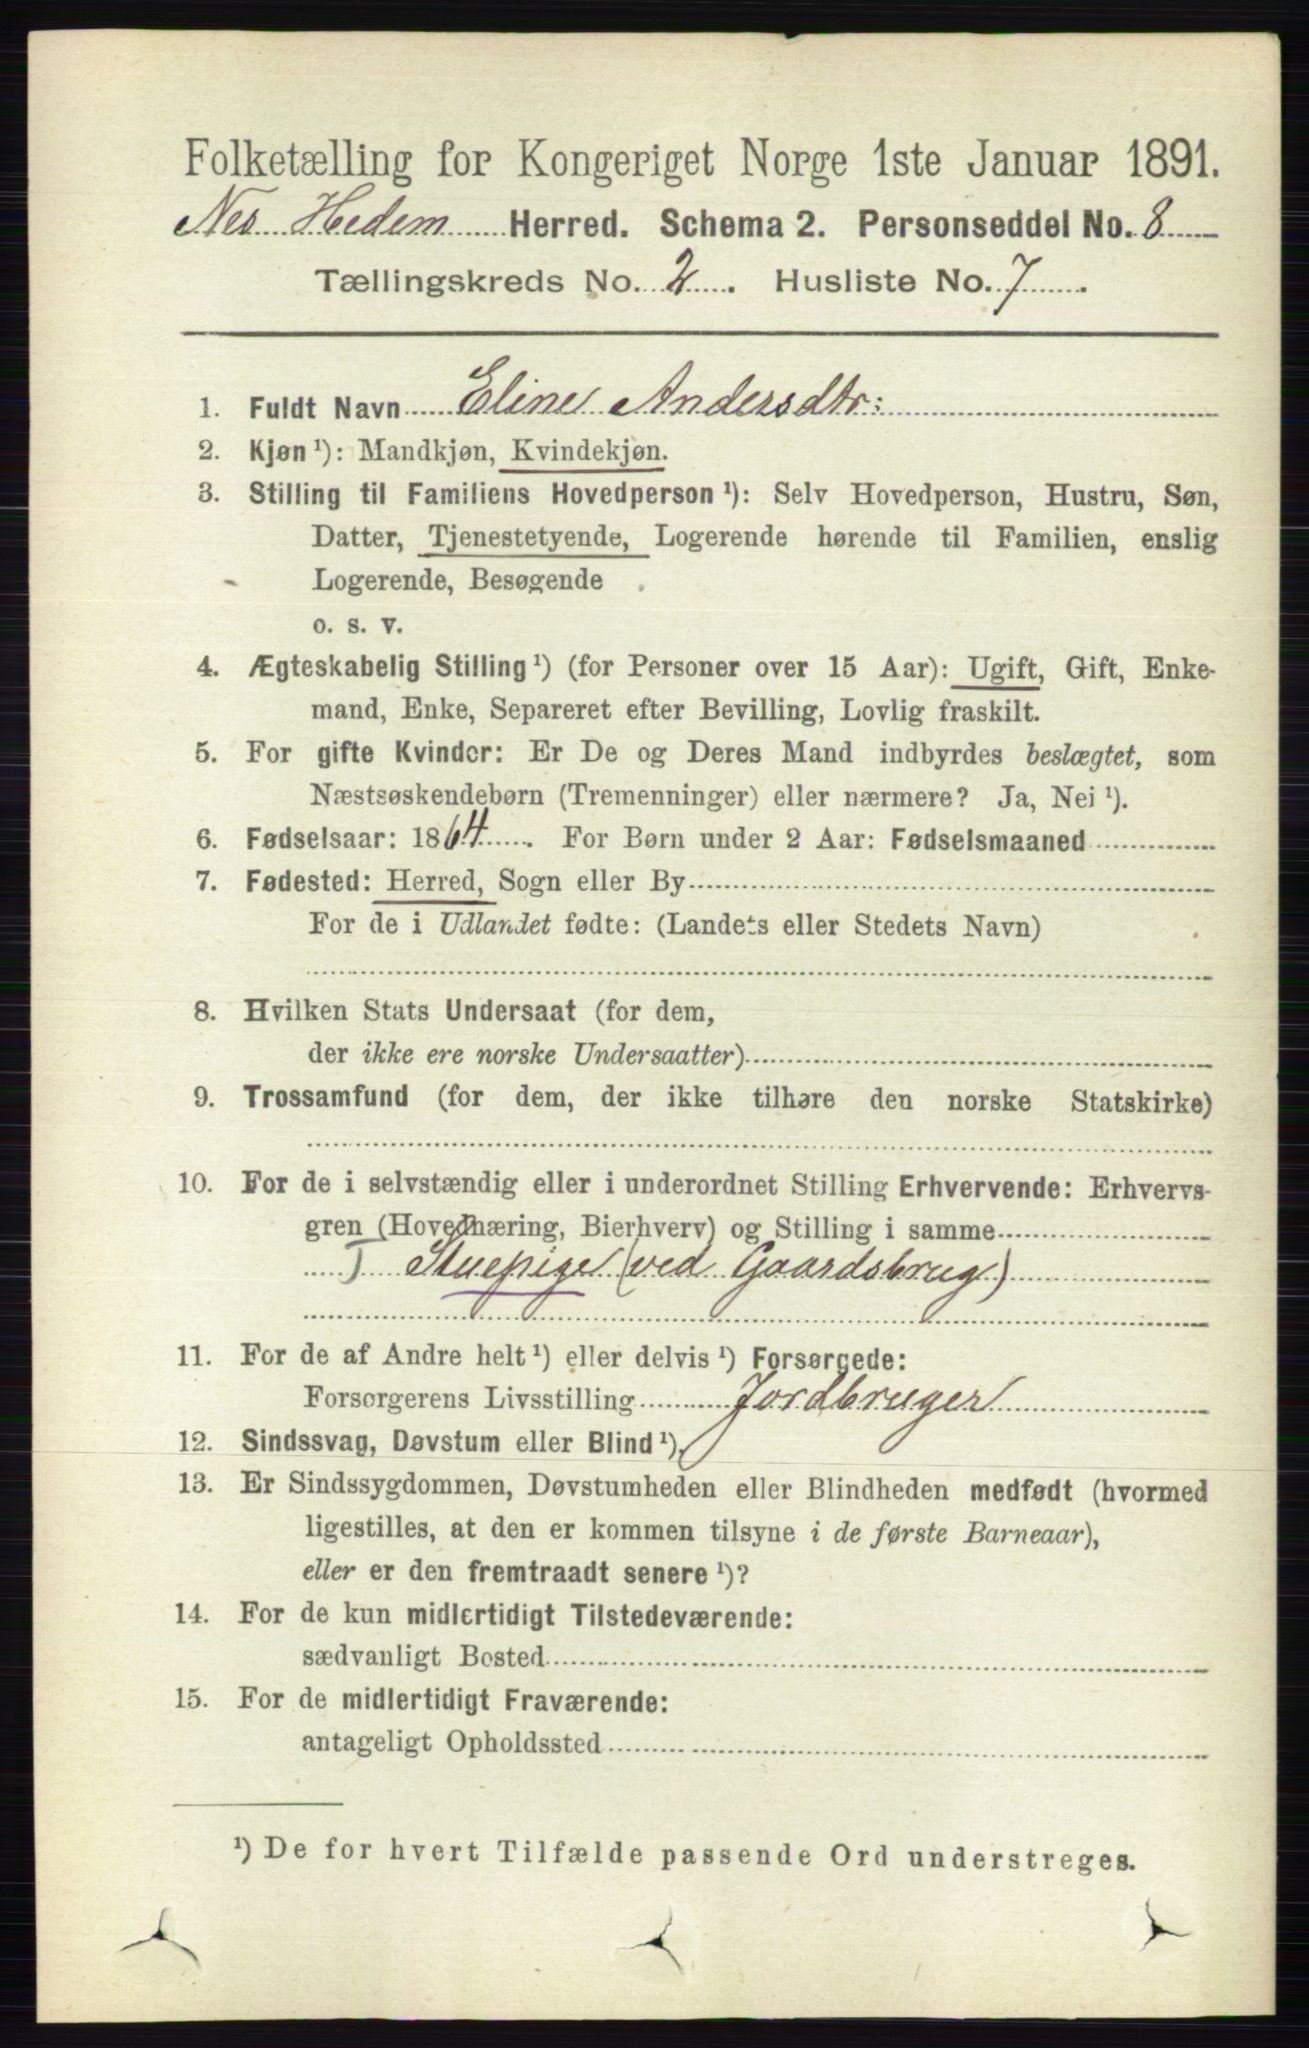 Folketælling for Kongeriget Norge 1ste Januar 1891.
Nes Hedem Herred. Schema 2. Personseddel No. 8
Tællingskreds No. 2. Husliste No. 7.
1. Fuldt Navn Eline Andersdtr:
2. Kjøn ¹): Mandkjøn, Kvindekjøn.
3. Stilling til Familiens Hovedperson ¹): Selv Hovedperson, Hustru, Søn,
Datter, Tjenestetyende, Logerende hørende til Familien, enslig
Logerende, Besøgende .
o. s. v.
4. Ægteskabelig Stilling ¹) (for Personer over 15 Aar): Ugift, Gift, Enke-
mand, Enke, Separeret efter Bevilling, Lovlig fraskilt.
5. For gifte Kvinder: Er De og Deres Mand indbyrdes beslægtet, som
Næstsøskendebørn (Tremenninger) eller nærmere? Ja, Nei ¹).
6. Fødselsaar: 1864. For Børn under 2 Aar: Fødselsmaaned
7. Fødested: Herred, Sogn eller By
For de i Udlandet fødte: (Landets eller Stedets Navn)
8. Hvilken Stats Undersaat (for dem,
der ikke ere norske Undersaatter)
9. Trossamfund (for dem, der ikke tilhøre den norske Statskirke)
10. For de i selvstændig eller i underordnet Stilling Erhvervende: Erhvervs-
gren (Hovednæring, Bierhverv) og Stilling i samme
Stuepige (ved Gaardsbrug)
11. For de af Andre helt ¹) eller delvis ¹) Forsørgede:
Forsørgerens Livsstilling Jordbruger
12. Sindssvag, Døvstum eller Blind ¹).
13. Er Sindssygdommen, Døvstumheden eller Blindheden medfødt (hvormed
ligestilles, at den er kommen tilsyne i de første Barneaar),
eller er den fremtraadt senere ¹)?
14. For de kun midlertidigt Tilstedeværende:
sædvanligt Bosted
15. For de midlertidigt Fraværende:
antageligt Opholdssted
¹) De for hvert Tilfælde passende Ord understreges.